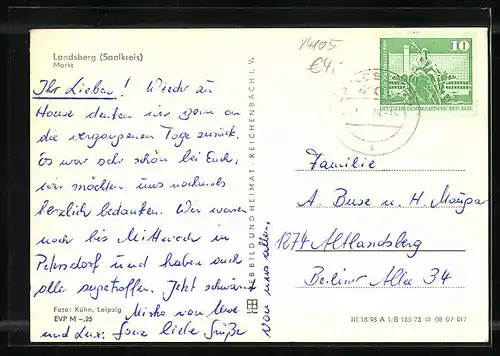 Landsberg (Saalkreis)
Markt
Ihr Lieben! Wieder zu
Hause denken wir gern an
die vergangenen Tage zurück.
Es war sehr schön bei Euch,
wir möchten uns nochmals
herzlich bedanken. Wir waren
noch bis Mittwoch in
Petersdorf und haben auch
alle angetroffen. Jetzt
von uns allen.
Foto: Kühn, Leipzig
EVP M –,25
und Lux. Ganz liebe Grüße
VEB BILD UND HEIMAT · REICHENBACH I. V.
Y4105
€4,-
10
DEUTSCHE DEMOKRATISCHE REPUBLIK
Familie
A. Buse u. H.
1274 Altlandsberg
Berliner Allee 34
III 18 98 A 1/B 185/73 01 08 07 017